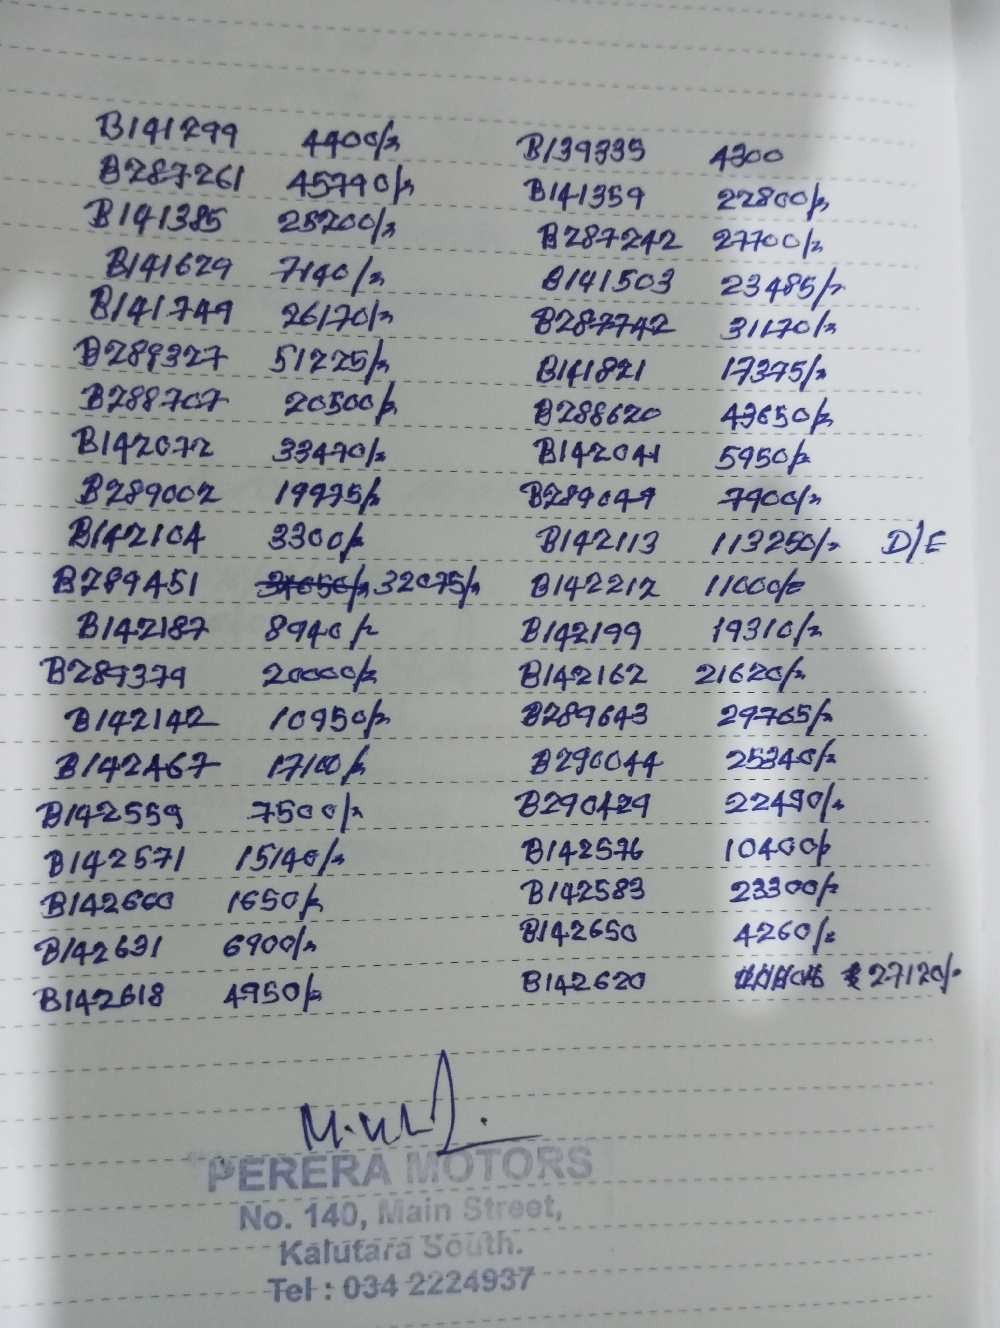 B141299 4400/= B139335 4300
B287261 45790/= B141359 22800/=
B141385 25200/= B287242 27700/=
B141629 7140/= B141503 23485/=
B141749 26170/= B287742 31170/=
B289327 51225/= B141821 17375/=
B288707 20500/= B288620 43650/=
B142072 33470/= B142041 5950/=
B289002 19975/= B289049 7900/=
B142104 3300/= B142113 113250/= D/E
B289451 32075/= B142212 11000/=
B142187 8940/= B142199 19310/=
B289379 20000/= B142162 21620/=
B142142 10950/= B289643 29765/=
B142467 17100/= B290044 25340/=
B142559 7500/= B290429 22490/=
B142571 15140/= B142576 10400/=
B142660 1650/= B142583 23300/=
B142631 6900/= B142650 4260/=
B142618 4950/= B142620 27120/=
PERERA MOTORS
No. 140, Main Street,
Kalutara South.
Tel : 034 2224937